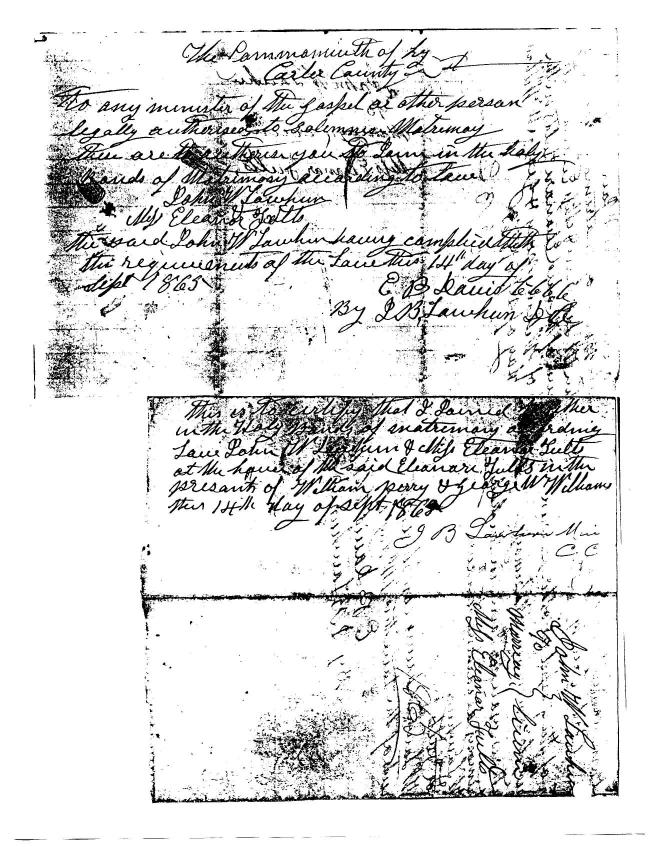 The Commonwealth of Ky
Carter County
To any minister of the Gospel or other person
legally authorised to solemnise Matrimony
These are to authorise you to Join in the holy
bonds of Matrimony according to Law
John W Lawhun
Miss Eleanor Fults
the said John W Lawhun having complied with
the requirements of the Law this 14th day of
Sept 1865
E B Davis
By J B Lawhun D C
This is to certify that I Joined together
in the Holy bonds of matrimony according
Law John W Lawhun & Miss Eleanor Fults
at the house of the said Eleanor Fults in the
presants of William perry & George W Williams
this 14th day of Sept 1865
J B Lawhun Min
C C
John W Lawhun
To
Marriag License
Miss Eleanor Fults